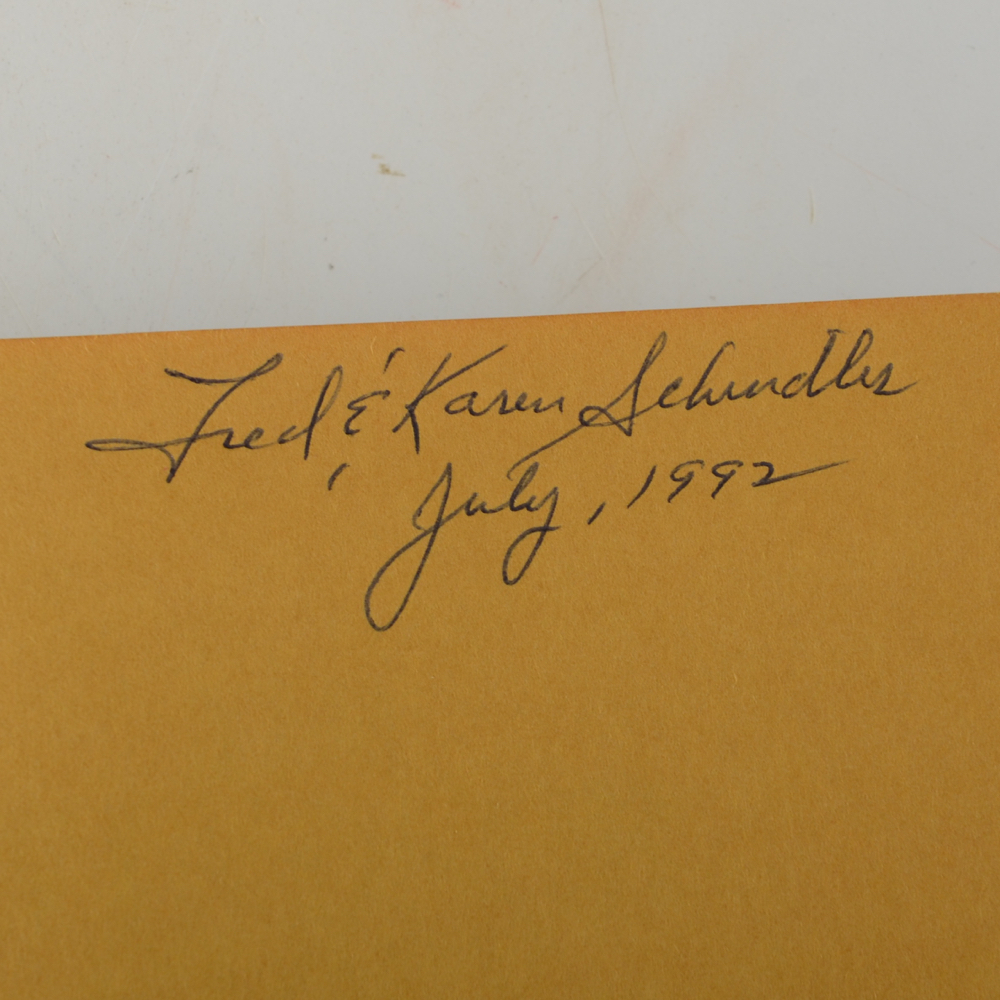 Fred & Karen Schindler
July, 1992